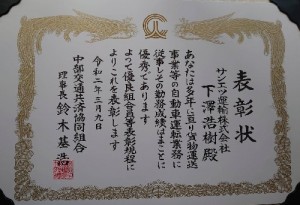 表彰状
サンエツ運輸株式会社
下澤浩樹殿
あなたは多年に亘り貨物運送
事業等の自動車運転業務に
従事しその勤務成績はまことに
優秀であります
よって優良組合員等表彰規程に
よりこれを表彰します
令和二年三月九日
中部交通共済協同組合
理事長 鈴木基